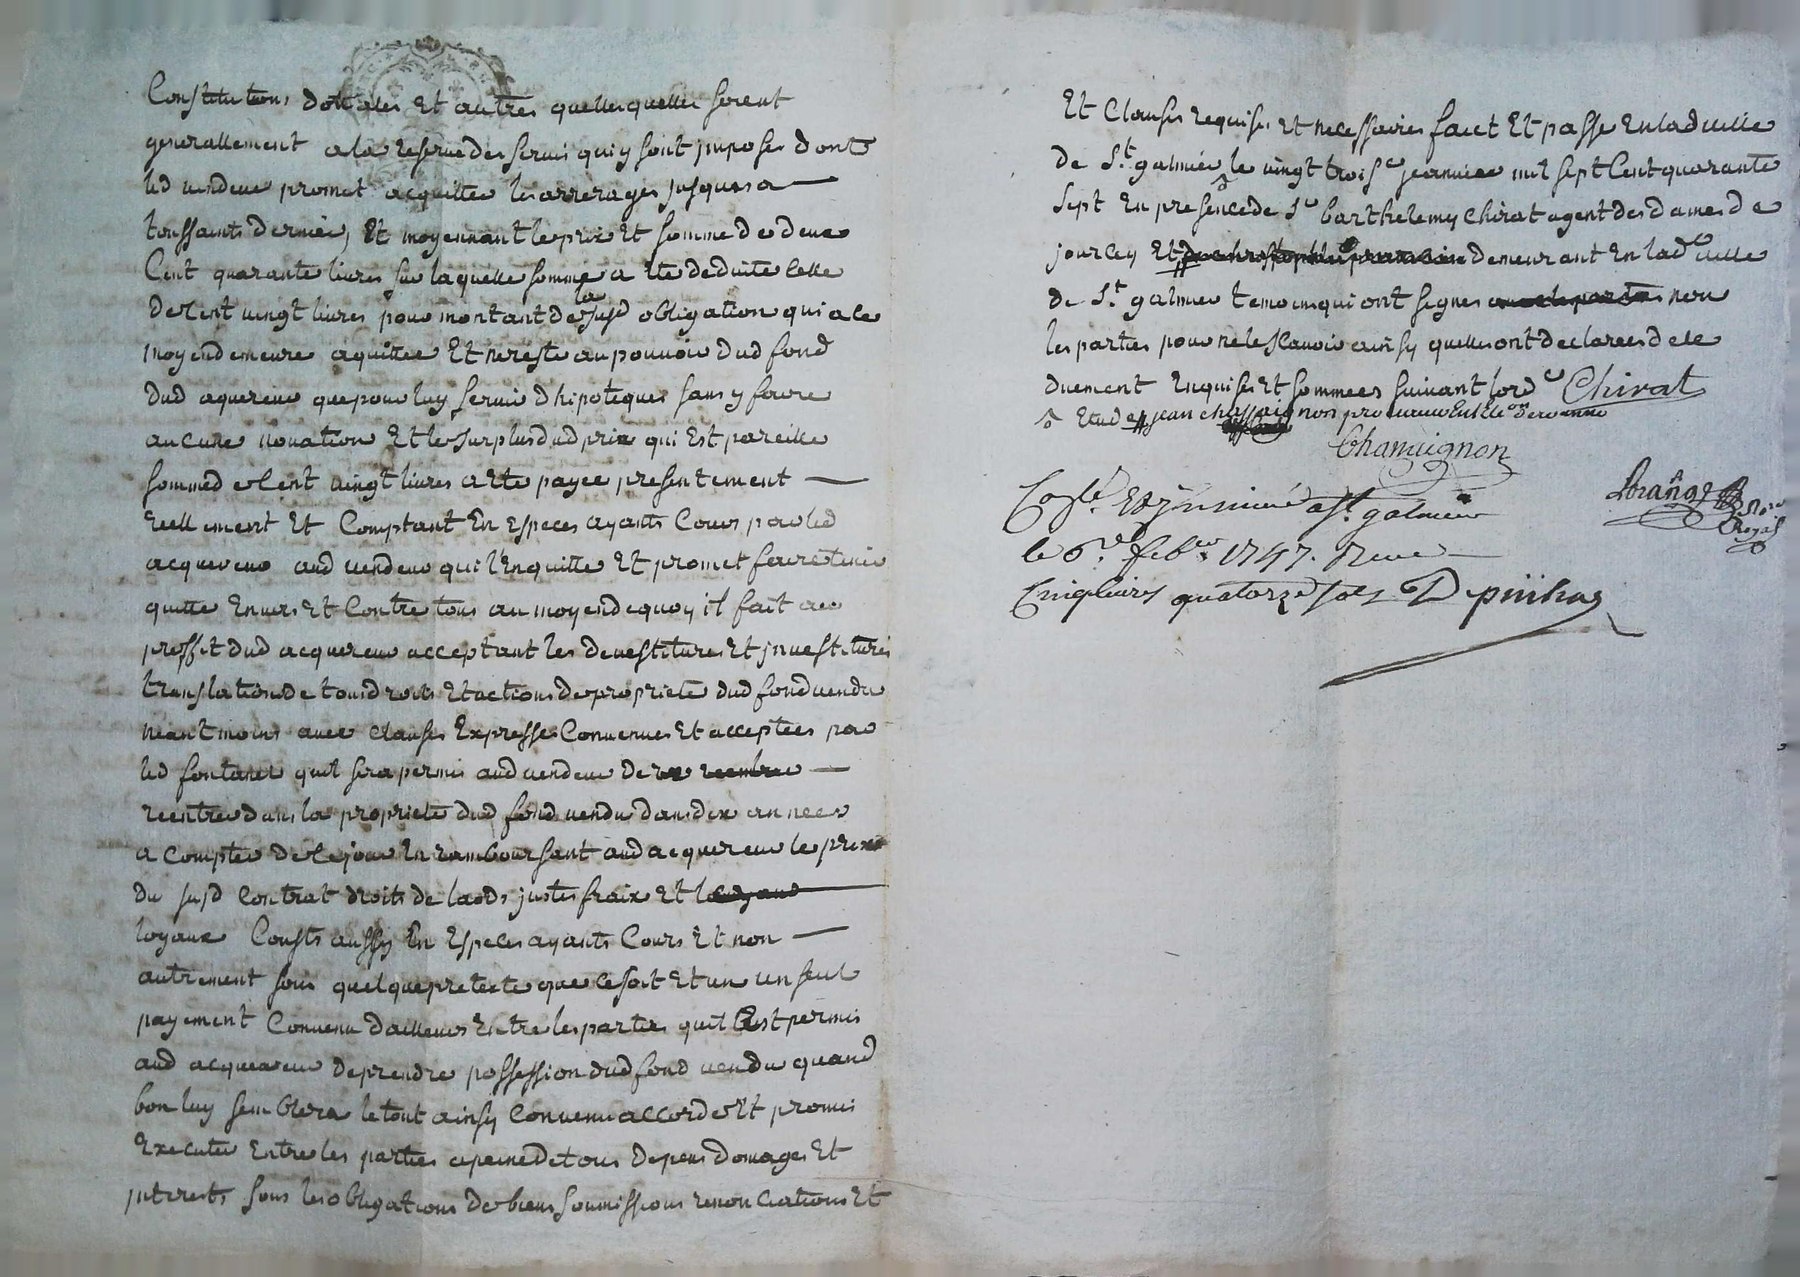 Constitutions dottales Et autres quellesquelles soient
generallement a la reserve des servis qui y sont imposes dont
led vendeur promet acquitter les arrerages jusques a
toussaints dernier, Et moyennant le prix Et somme de deux
Cent quarante livres sur laquelle somme a ete deduite celle
de Cent vingt livres pour montant de la susd obligation qui a ce
moyen demeure aquittee Et ne reste au pouvoir dud fond
dud aquereur que pour luy servir dhipoteques sans y faire
aucune novation Et le surplus dud prix qui Est pareille
somme de Cent vingt livres a ete payee presentement
reellement Et Comptant En Especes ayants Cours par led
acquereur aud vendeur qui l'En quitte Et promet faire tenir
quitte Envers Et Contre tous au moyen de quoy il fait au
proffit dud acquereur acceptant les devestitures Et investitures
translations de tous droits Et actions de propriete dud fond vendu
neantmoins avec clauses Expresses Convenues Et acceptees par
led fontanes quil sera permis aud vendeur de
rentrer dans la propriete dud fond vendu dans dix annees
a compter de ce jour En ramboursant aud acquereur le prix
du susd Contrat droits de laods justes fraix Et
loyaux Cousts aussy En Especes ayants Cours Et non
autrement sous quelque pretexte que ce soit Et en un seul
payement Convenu dailleurs Entre les parties quil Est permis
aud acquereur de prendre possession dud fond vendu quand
bon luy semblera le tout ainsy Convenu accorde Et promis
Executer Entre les parties a peine de tous depens domages Et
interests sous les obligations de biens soumissions renonciations Et
Et Clauses requises Et necessaires fait Et passe En lad ville
de St galmier le vingt trois e janvier mil sept Cent quarante
sept En presence de Sr barthelemy Chirat agent des dames de
jourcey Et demeurant En lad ville
de St galmier temoins qui ont signes non
les parties pour ne le scavoir ainsy quelles ont declarees de ce
duement Enquises Et sommees suivant lord e Chirat
Et de jean chassaignon procureur En
Chassaignon
Collé Et Insinué a St galmier
le 6e febr 1747. Receu
Cinq livres quatorze sols Depüihas
Lorange No.re Royal